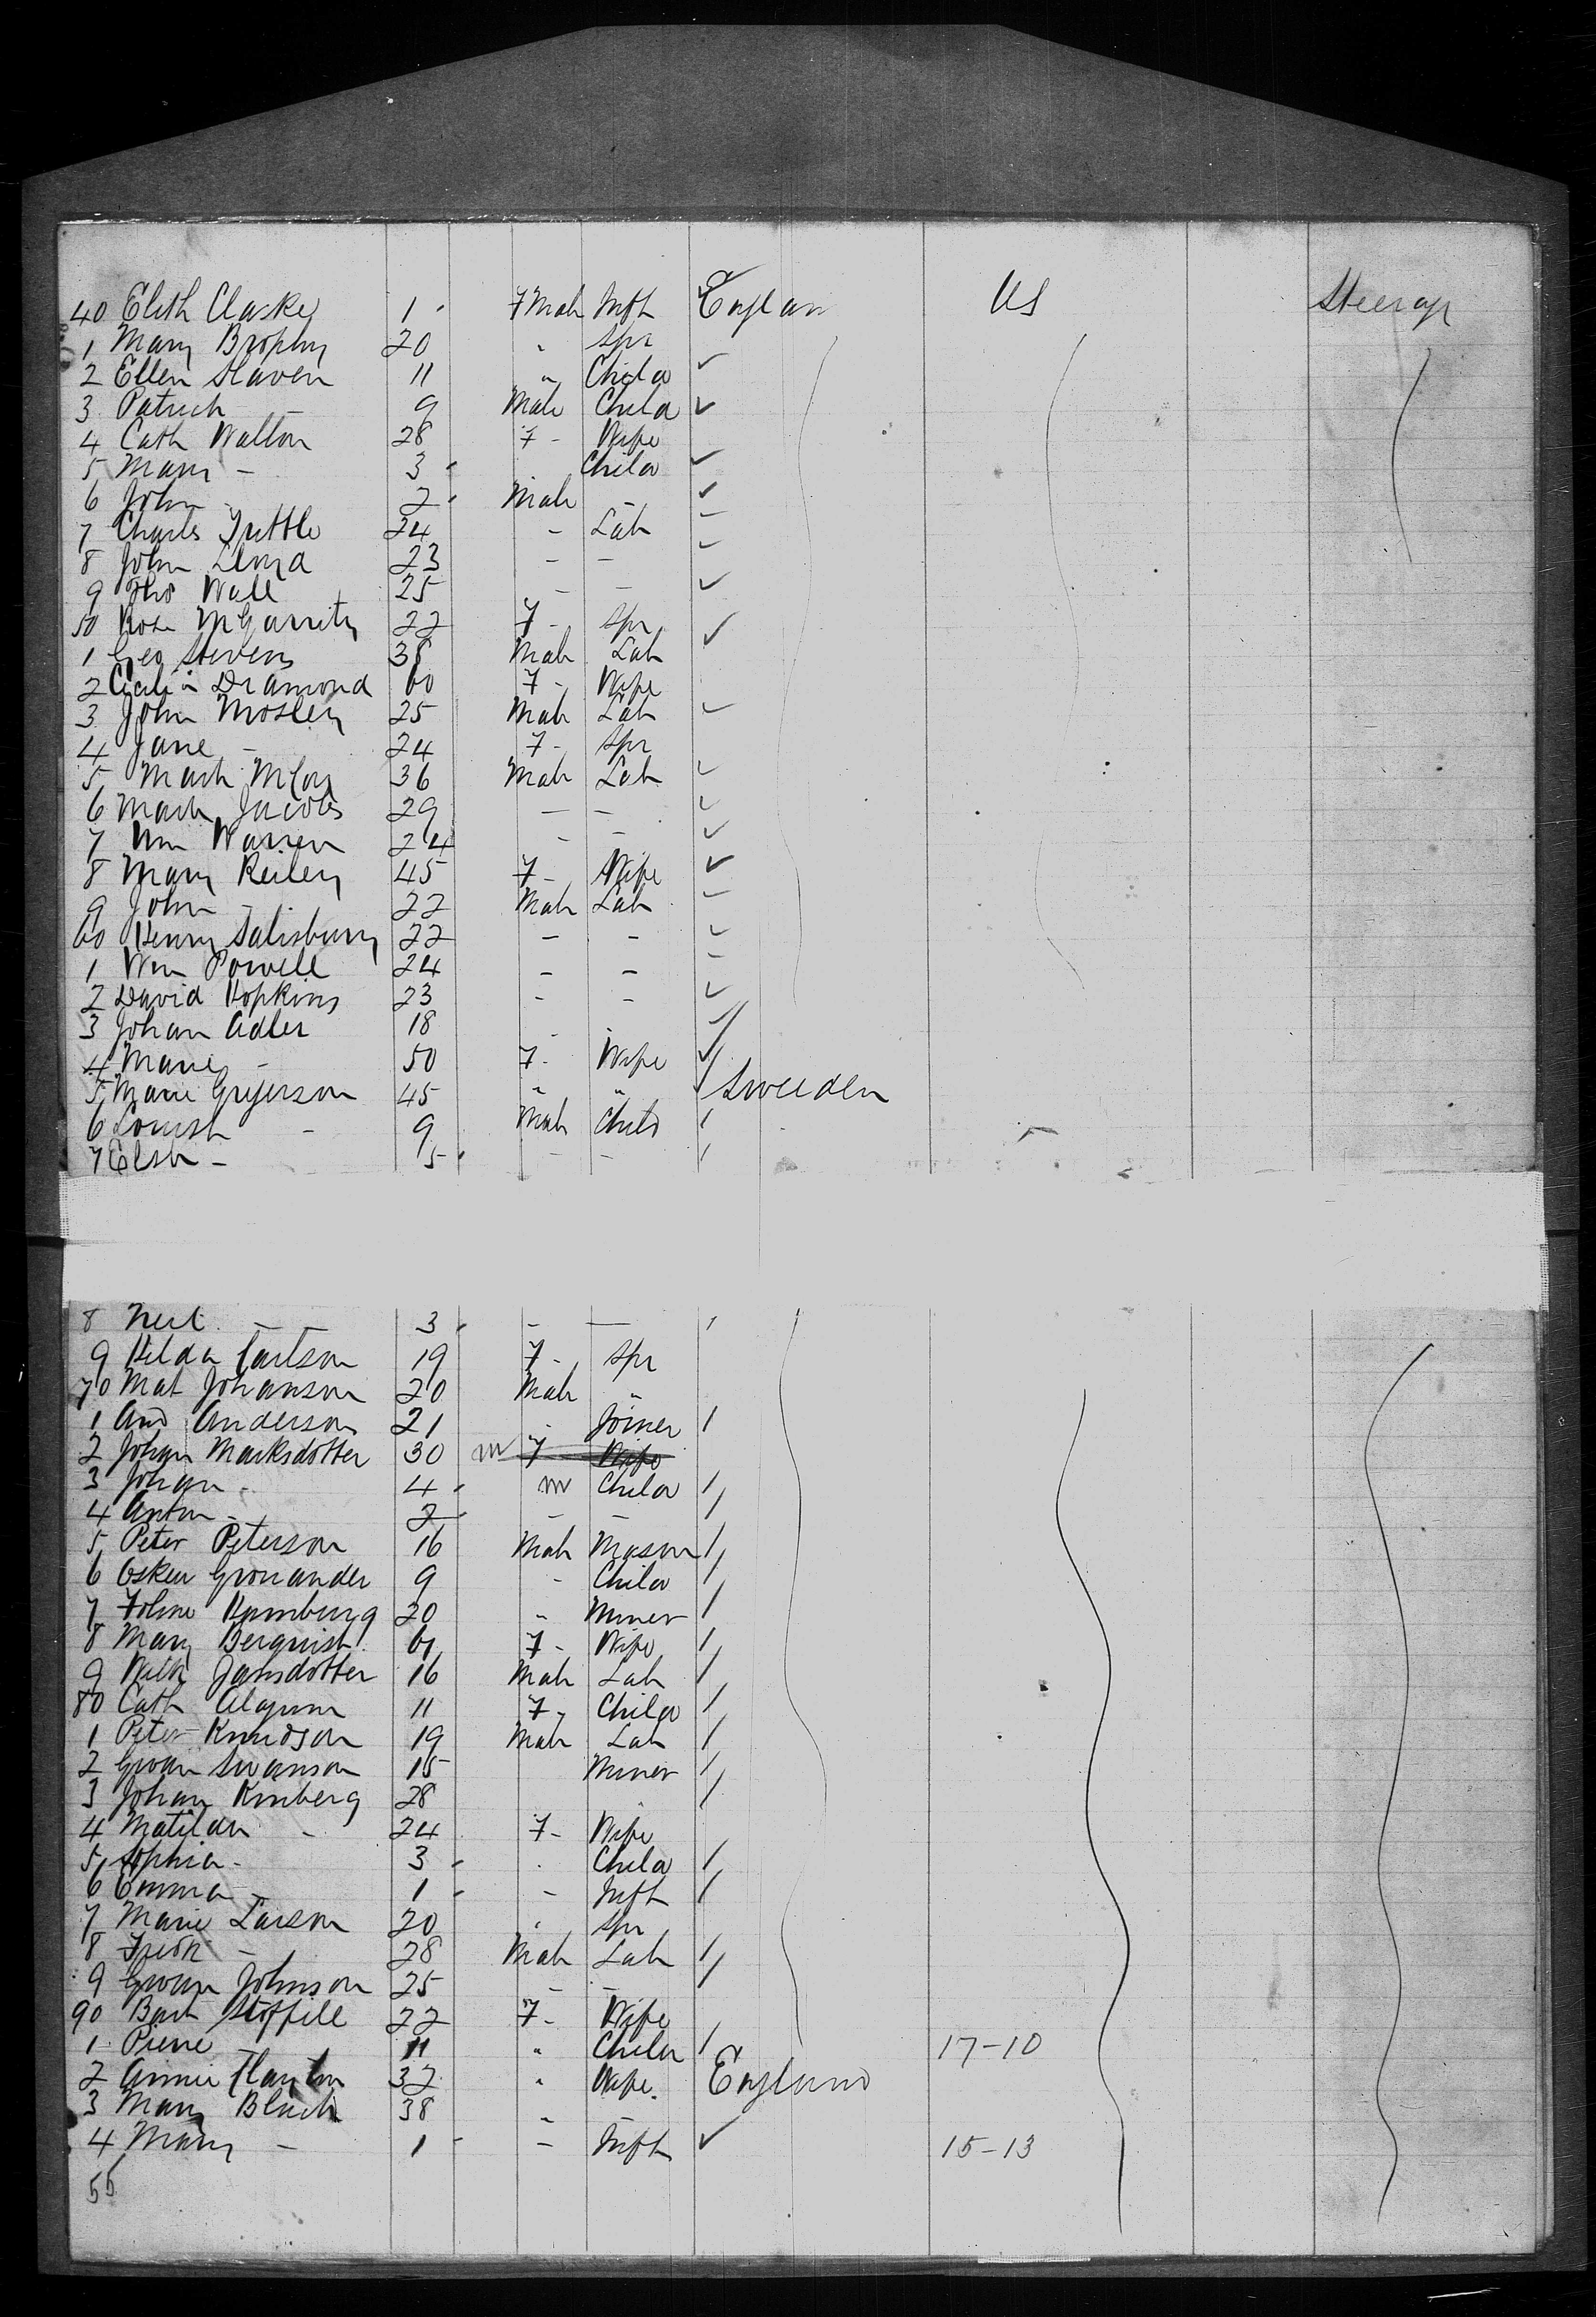 40 Elith Clarke 1 " F Male Inft England US Steerage
1 Mary Brophy 20 " Spr
2 Ellen Slaven 11 " Child
3 Patrick — 9 Male Child
4 Cath Walton 28 F - Wife
5 Mary - 3 Child
6 John - 2 Male -
7 Charles Tuttle 24 - Lab
8 John 23 - -
9 Thos Wall 25 - -
50 Rose McGarrity 22 F - Spr
1 Geo Stevens 38 Male Lab
2 Cecilia Diamond 60 F - Wife
3 John Mosley 25 Male Lab
4 Jane - 24 F - Spr
5 Mark McCoy 36 Male Lab
6 Mark Jacobs 29 - -
7 Wm Warren 24 - -
8 Mary Reiley 45 F - Wife
9 John - 22 Male Lab
60 Henry Salisbury 22 - -
1 Wm Powell 24 - -
2 David Hopkins 23 - -
3 Johan Adler 18 - -
4 Marie - 50 F - Wife
5 Marie Gryerson 45 " " Sweeden
6 Louish - 9 Male Child
7 Elsa - 5 - -
8 - - 3 - -
9 Hilda Carlson 19 F - Spr
70 Mat Johanson 20 Male "
1 And Anderson 21 " Joiner
2 Johan Marksdotter 30 m F Wife
3 Johan - 4 m Child
4 Anton - 2 - -
5 Peter Peterson 16 Male Mason
6 Osker Gronander 9 - Child
7 20 " Miner
8 Mary Berquist 61 F - Wife
9 Jansdotter 16 Male Lab
80 Cath 11 F - Child
1 Peter Knudson 19 Male Lab
2 Swanson 15 Miner
3 Johan Kinberg 28
4 Matilda - 24 F - Wife
5 Sophia - 3 - Child
6 Emma - 1 - Inft
7 Marie Larson 20 " Spr
8 Fredk - 28 Male Lab
9 Johnson 25 - -
90 Stoffell 22 F - Wife
1 Pierre - 11 " Child 17-10
2 Annie 32 " Wife England
3 Mary Black 38 " -
4 Mary - 1 - Inft 15-13
55